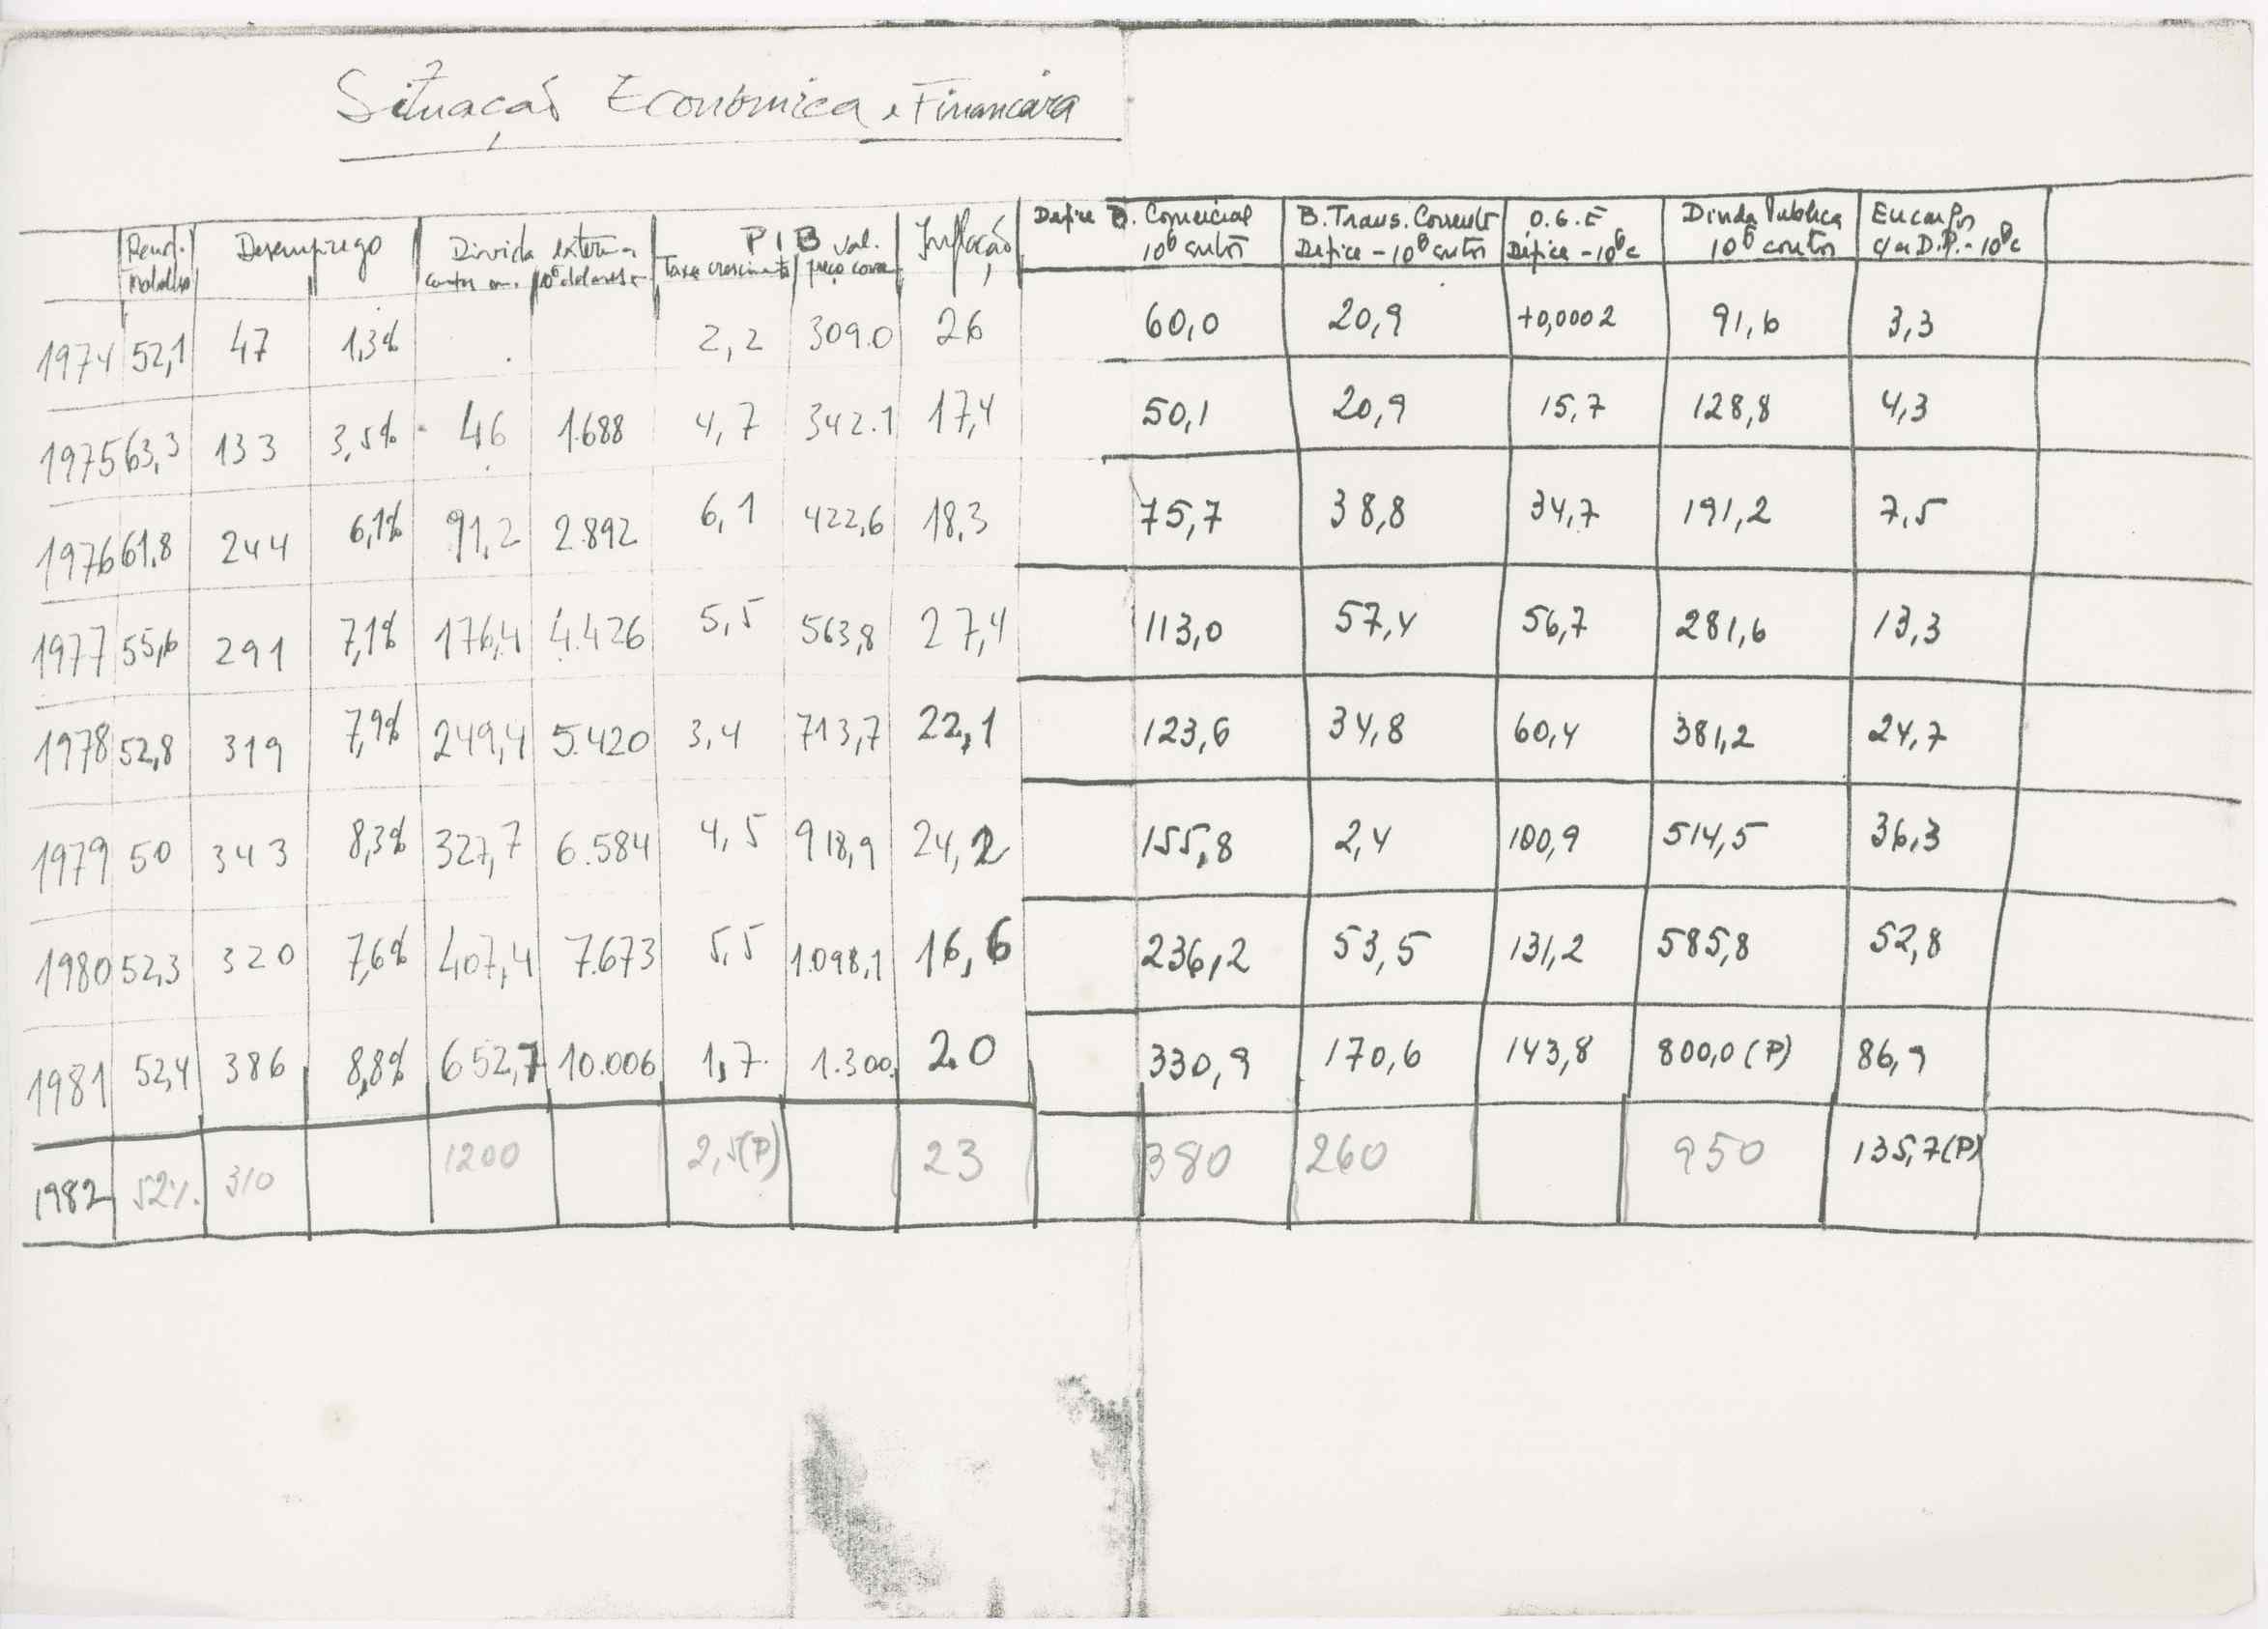 Situação Económica e Financeira
Rend. Trabalho Desemprego Divida externa contos 10⁶ dolares PIB Taxa crescimento val. preço corr. Inflação Defice B. Comercial 10⁶ contos B. Trans. Corrente Defice - 10⁶ contos O.G.E Défice - 10⁶c Divida Publica 10⁶ contos Encargos c/a D.P. - 10⁶c
1974 52,1 47 1,3% 2,2 309.0 26 60,0 20,9 +0,0002 91,6 3,3
1975 63,3 133 3,5% 46 1.688 4,7 342.1 17,4 50,1 20,9 15,7 128,8 4,3
1976 61,8 244 6,1% 91,2 2.892 6,1 422,6 18,3 75,7 38,8 34,7 191,2 7,5
1977 55,6 291 7,1% 176,4 4.426 5,5 563,8 27,4 113,0 57,4 56,7 281,6 13,3
1978 52,8 319 7,9% 249,4 5.420 3,4 713,7 22,1 123,6 34,8 60,4 381,2 24,7
1979 50 343 8,3% 327,7 6.584 4,5 918,9 24,2 155,8 2,4 100,9 514,5 36,3
1980 52,3 320 7,6% 407,4 7.673 5,5 1.098,1 16,6 236,2 53,5 131,2 585,8 52,8
1981 52,4 386 8,8% 652,7 10.006 1,7 1.300 20 330,9 170,6 143,8 800,0 (P) 86,9
1982 52%. 310 1200 2,5(P) 23 380 260 950 135,7(P)